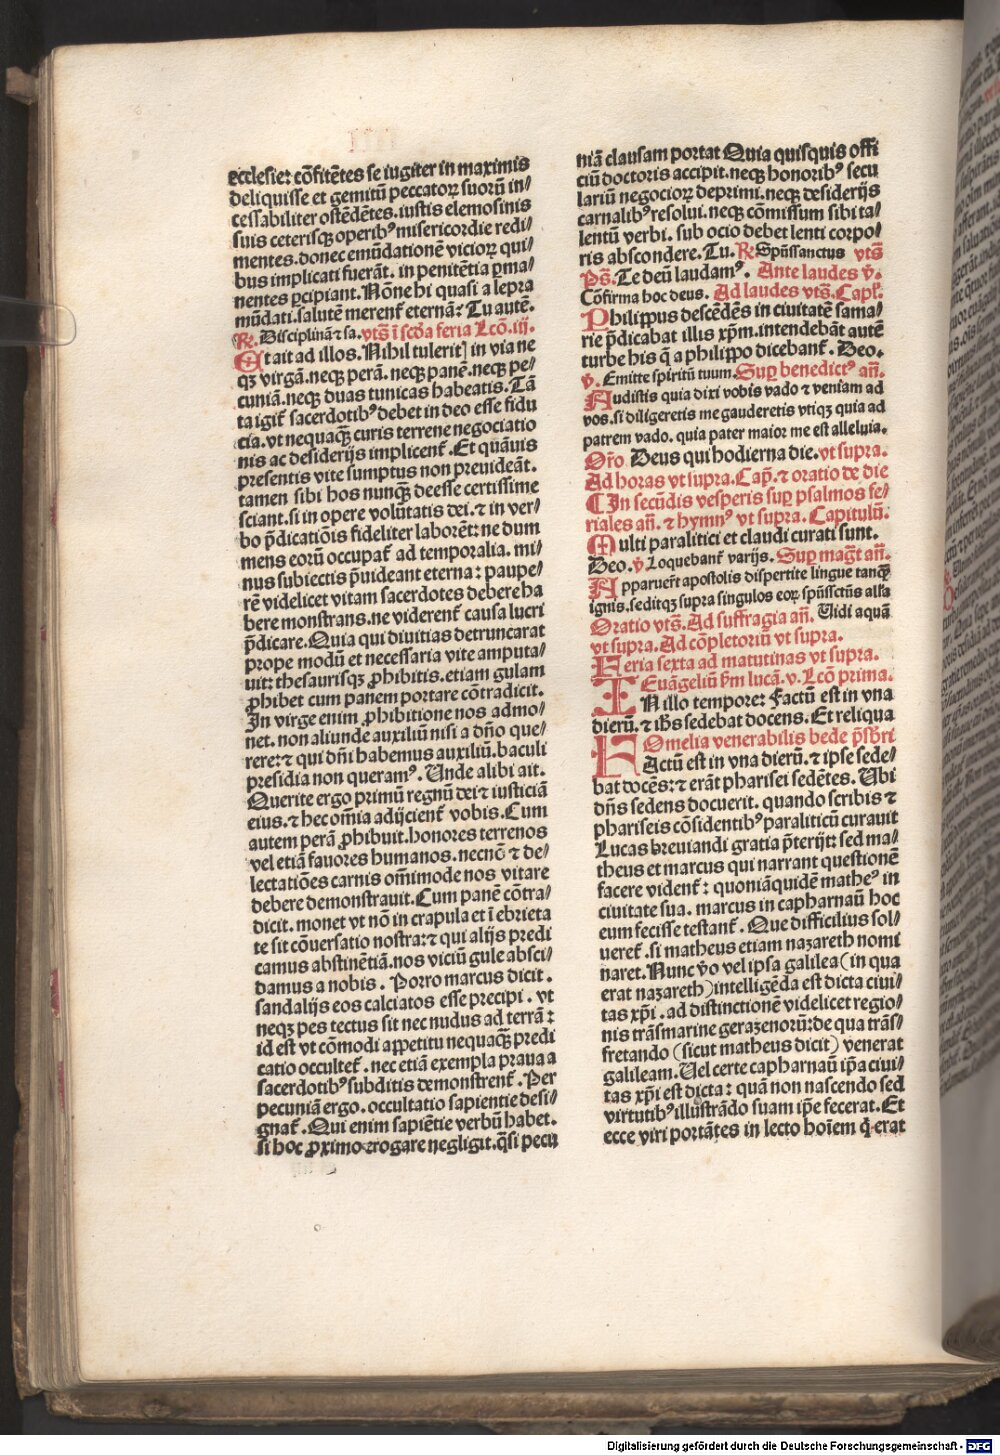 ecclesie: cōfitētes se iugiter in maximis
deliquisse et gemitū peccatoꝝ suorū in⸗
cessabiliter ostēdētes. iustis elemosinis
suis ceterisqꝫ operibꝰ misericordie redi⸗
mentes. donec emūdationē vicioꝝ qui⸗
bus implicati fuerāt. in penitētia ꝑma⸗
nentes ꝑcipiant. Nōne hi quasi a lepra
mūdati. salutē merent᷑ eternā: Tu autē.
℟. Disciplinā ⁊ sa. vtꝫ̄ ī scd̄a feria Lcō. iij.
Et ait ad illos. Nihil tulerit⁊ in via ne
qꝫ virgā. neqꝫ perā. neqꝫ panē. neqꝫ pe⸗
cuniā. neqꝫ duas tunicas habeatis. Tā
ta igit᷑ sacerdotibꝰ debet in deo esse fidu
cia. vt nequaqꝫ̄ curis terrene negociatio
nis ac desiderijs implicent᷑. Et quāuis
presentis vite sumptus non preuideāt.
tamen sibi hos nunqꝫ̄ deesse certissime
sciant. si in opere volūtatis dei. ⁊ in ver⸗
bo p̄dicatiōis fideliter laborēt: ne dum
mens eorū occupat᷑ ad temporalia. mi⸗
nus subiectis p̄uideant eterna: paupe⸗
rē videlicet vitam sacerdotes debere ha
bere monstrans. ne viderent᷑ causa lucri
p̄dicare. Quia qui diuitias detruncarat
prope modū et necessaria vite amputa⸗
uit: thesaurisqꝫ ꝓhibitis. etiam gulam
ꝓhibet cum panem portare cōtradicit.
In virge enim ꝓhibitione nos admo⸗
net. non aliunde auxiliū nisi a dn̄o que⸗
rere: ⁊ qui dn̄i habemus auxiliū. baculi
presidia non queramꝰ. Unde alibi ait.
Querite ergo primū regnū dei ⁊ iusticiā
eius. ⁊ hec om̄ia adijcient᷑ vobis. Cum
autem perā ꝓhibuit. honores terrenos
vel etiā fauores humanos. necnō ⁊ de⸗
lectatiōes carnis om̄imode nos vitare
debere demonstrauit. Cum panē cōtra⸗
dicit. monet vt nō in crapula et ī ebrieta
te sit cōuersatio nostra: ⁊ qui alijs predi
camus abstinētiā. nos viciū gule absci⸗
damus a nobis. Porro marcus dicit.
sandalijs eos calciatos esse precipi. vt
neqꝫ pes tectus sit nec nudus ad terrā:
id est vt cōmodi appetitu nequaqꝫ̄ predi
catio occultet᷑. nec etiā exempla praua a
sacerdotibꝰ subditis demonstrent᷑. Per
pecuniā ergo. occultatio sapientie desi⸗
gnat᷑. Qui enim sapiētie verbū habet.
si hoc ꝓximo erogare negligit. q̄si pecu
niā clausam portat Quia quisquis offi
ciū doctoris accipit. neqꝫ honoribꝰ secu
lariū negocioꝝ deprimi. neqꝫ desiderijs
carnalibꝰ resolui. neqꝫ cōmissum sibi ta⸗
lentū verbi. sub ocio debet lenti corpo⸗
ris abscondere. Tu. ℟. Spūssanctus vtꝫ̄
Ps̄. Te deū laudamꝰ. Ante laudes v̄.
Cōfirma hoc deus. Ad laudes vtꝫ̄. Capl᷑.
Philippus descēdēs in ciuitatē sama⸗
rie p̄dicabat illis xp̄m. intendebāt autē
turbe his q̄ a philippo dicebant᷑. Deo.
v̄. Emitte spiritū tuum. Suꝑ benedictꝰ an̄.
Audistis quia dixi vobis vado ⁊ veniam ad
vos. si diligeretis me gauderetis vtiqꝫ quia ad
patrem vado. quia pater maior me est alleluia.
Or̄o Deus qui hodierna die. vt supra.
Ad horas vt supra. Cap. ⁊ oratio de die
¶ In secūdis vesperis suꝑ psalmos fe⸗
riales an̄. ⁊ hymnꝰ vt supra. Capitulū.
Multi paralitici et claudi curati sunt.
Deo. v̄ Loquebant᷑ varijs. Suꝑ mag̅t an̄.
Apparuer᷑t apostolis dispertite lingue tanqꝫ̄
ignis. seditqꝫ supra singulos eoꝝ spūssctūs all̄a
Oratio vtꝫ̄. Ad suffragia an̄. Vidi aquā
vt supra. Ad cōpletoriū vt supra.
Feria sexta ad matutinas vt supra.
Euāgeliū ẜm lucā. v. Lcō prima.
IN illo tempore: Factū est in vna
dierū. ⁊ ih̄s sedebat docens. Et reliqua
Omelia venerabilis bede p̄sb̄ri
FActū est in vna dierū. ⁊ ipse sede⸗
bat docēs: ⁊ erāt pharisei sedētes. Ubi
dn̄s sedens docuerit. quando scribis ⁊
phariseis cōsidentibꝰ paraliticū curauit
Lucas breuiandi gratia p̄terijt: sed ma⸗
theus et marcus qui narrant questionē
facere vident᷑: quoniāquidē matheꝰ in
ciuitate sua. marcus in capharnaū hoc
eum fecisse testant᷑. Que difficilius sol⸗
ueret᷑. si matheus etiam nazareth nomi
naret. Nunc v̄o vel ipsa galilea (in qua
erat nazareth) intelligēda est dicta ciui⸗
tas xp̄i. ad distinctionē videlicet regio⸗
nis trāsmarine gerazenorū: de qua trās⸗
fretando (sicut matheus dicit) venerat
galileam. Uel certe capharnaū ip̄a ciui⸗
tas xp̄i est dicta: quā non nascendo sed
virtutibꝰ illustrādo suam ip̄e fecerat. Et
ecce viri portātes in lecto hoīem q̄ erat
Digitalisierung gefördert durch die Deutsche Forschungsgemeinschaft - DFG